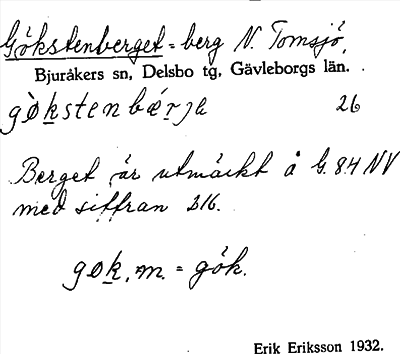 Gökstenberget = berg N. Tomsjö,
Bjuråkers sn, Delsbo tg, Gävleborgs län.
gö̀kstenbǽrjə 26
Berget är utmärkt å G. 84 NV
med siffran 316.
gök, m. = gök.
Erik Eriksson 1932.